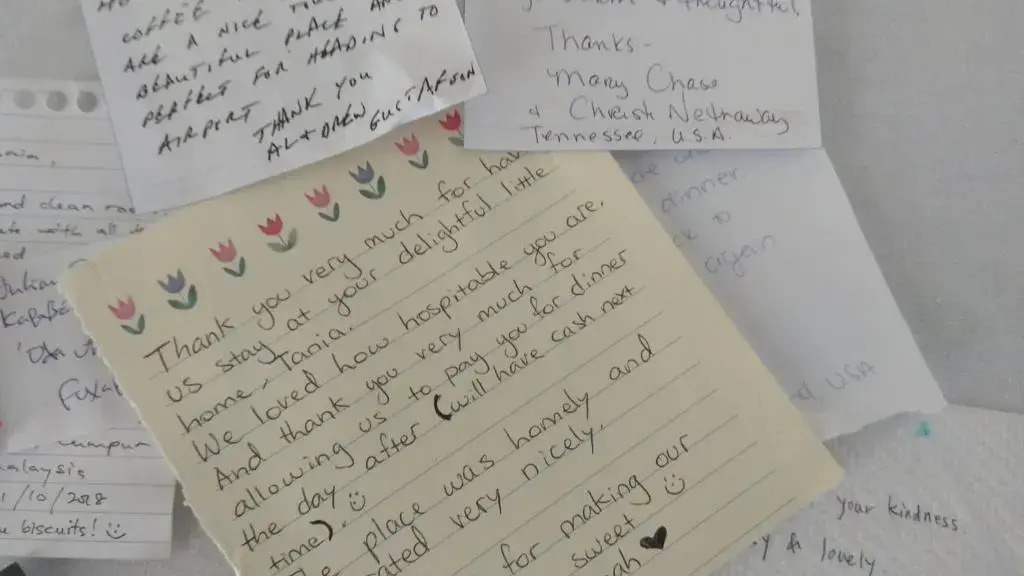 COFFEE
ARE A NICE
BEAUTIFUL PLACE AND
PERFECT FOR HEADING TO
AIRPORT
THANK YOU
AL & DREW GUSTAFSON
& thoughtful.
Thanks -
Mary Chase
& Christi Nethaway
Tennessee, U.S.A.
dinner.
to
again
USA
and clean
with all
Julian
Malaysia
1/10/2018
biscuits! :)
Thank you very much for
us stay at your delightful little
home, Tania.
We loved how hospitable you are.
And thank you very much for
allowing us to pay you for dinner
the day after (will have cash next
time). :)
place was homely and
very nicely.
for making our
sweet :)
♥
your kindness
& lovely